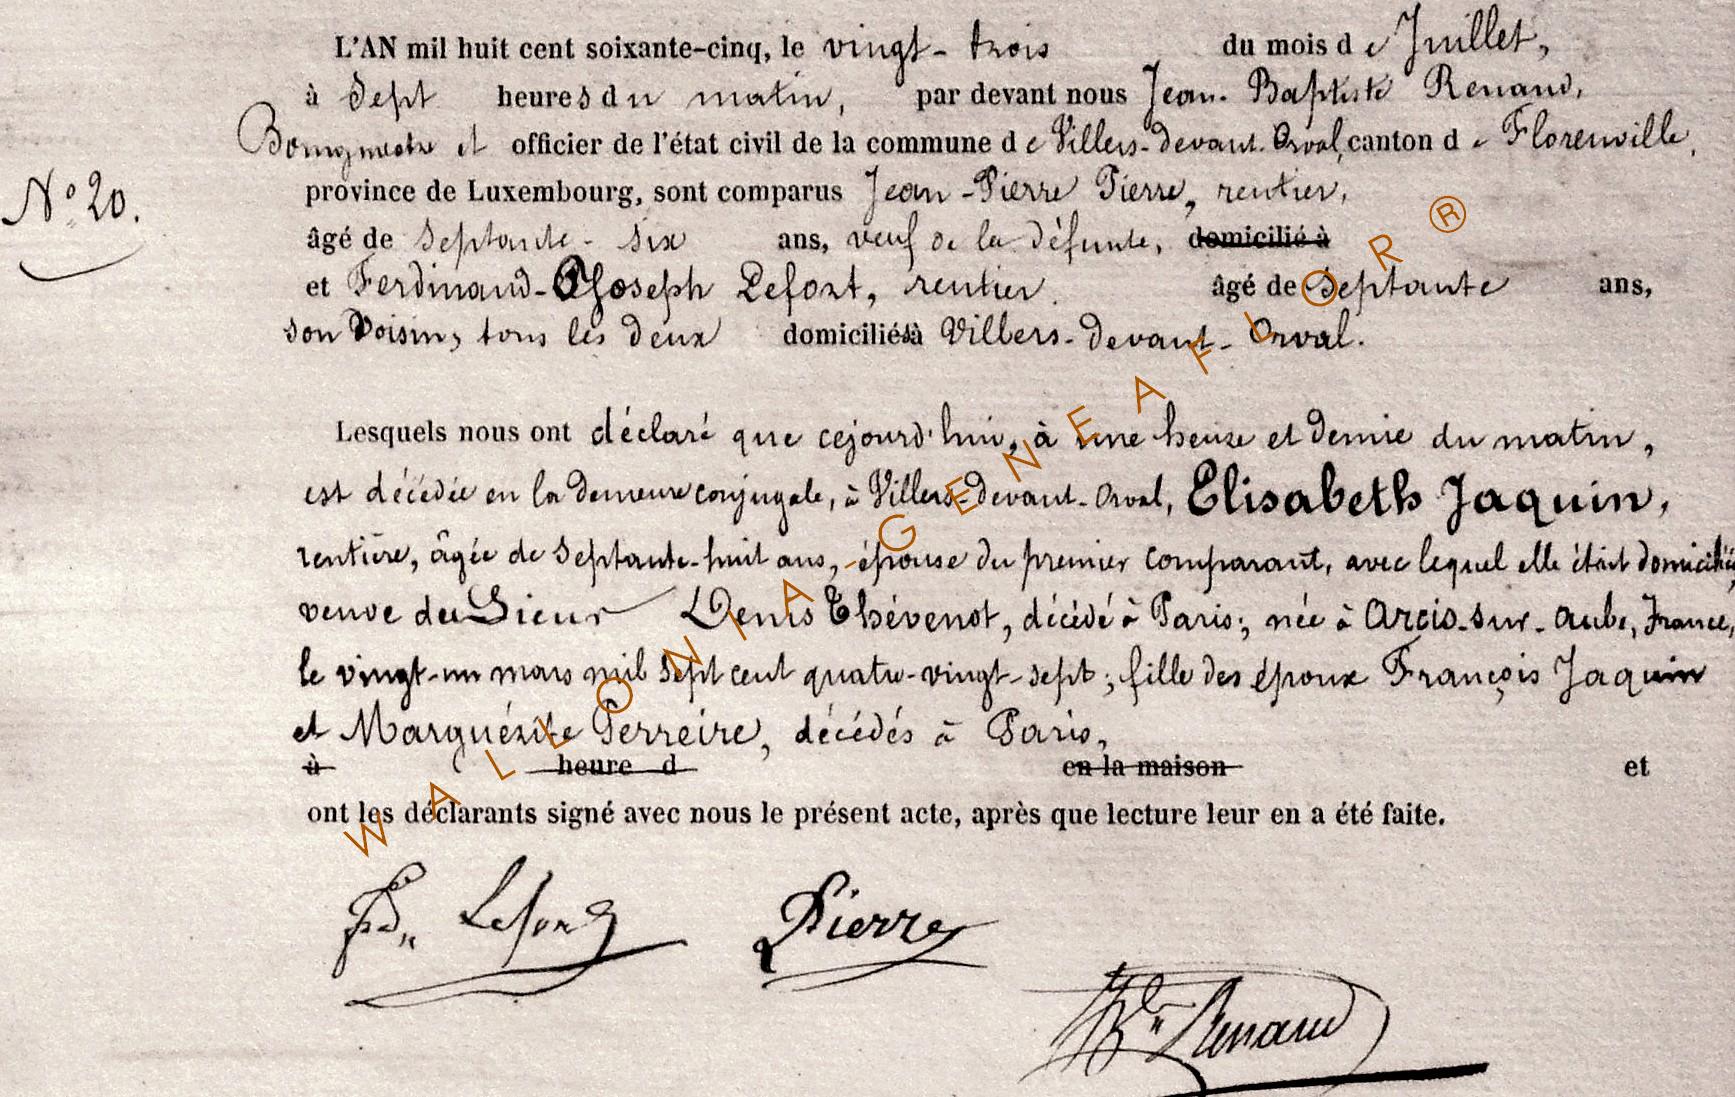 L'AN mil huit cent soixante-cinq, le vingt-trois du mois de Juillet,
à Sept heures du matin, par devant nous Jean-Baptiste Renaud,
Bourgmestre et officier de l'état civil de la commune de Villers-devant-Orval, canton de Florenville,
N° 20.
province de Luxembourg, sont comparus Jean-Pierre Pierre, rentier,
âgé de septante-six ans, veuf de la défunte, domicilié à
et Ferdinand-Joseph Lefort, rentier. âgé de Septante ans,
son Voisin, tous les deux domiciliés à Villers-devant-Orval.
Lesquels nous ont déclaré que cejourd'hui, à une heure et demie du matin,
est décédée en la demeure conjugale, à Villers-devant-Orval, Elisabeth Jaquin,
rentière, âgée de Septante-huit ans, épouse du premier comparant, avec lequel elle était domiciliée,
veuve du Sieur Denis Thévenot, décédé à Paris; née à Arcis-sur-Aube, France,
le vingt-un mars mil sept cent quatre-vingt-sept; fille des époux François Jaquin
et Marguérite Perreire, décédés à Paris,
à heure d en la maison et
ont les déclarants signé avec nous le présent acte, après que lecture leur en a été faite.
Fd. Lefort Pierre
Renaud
WALLONIA-GENEAFLOR ®